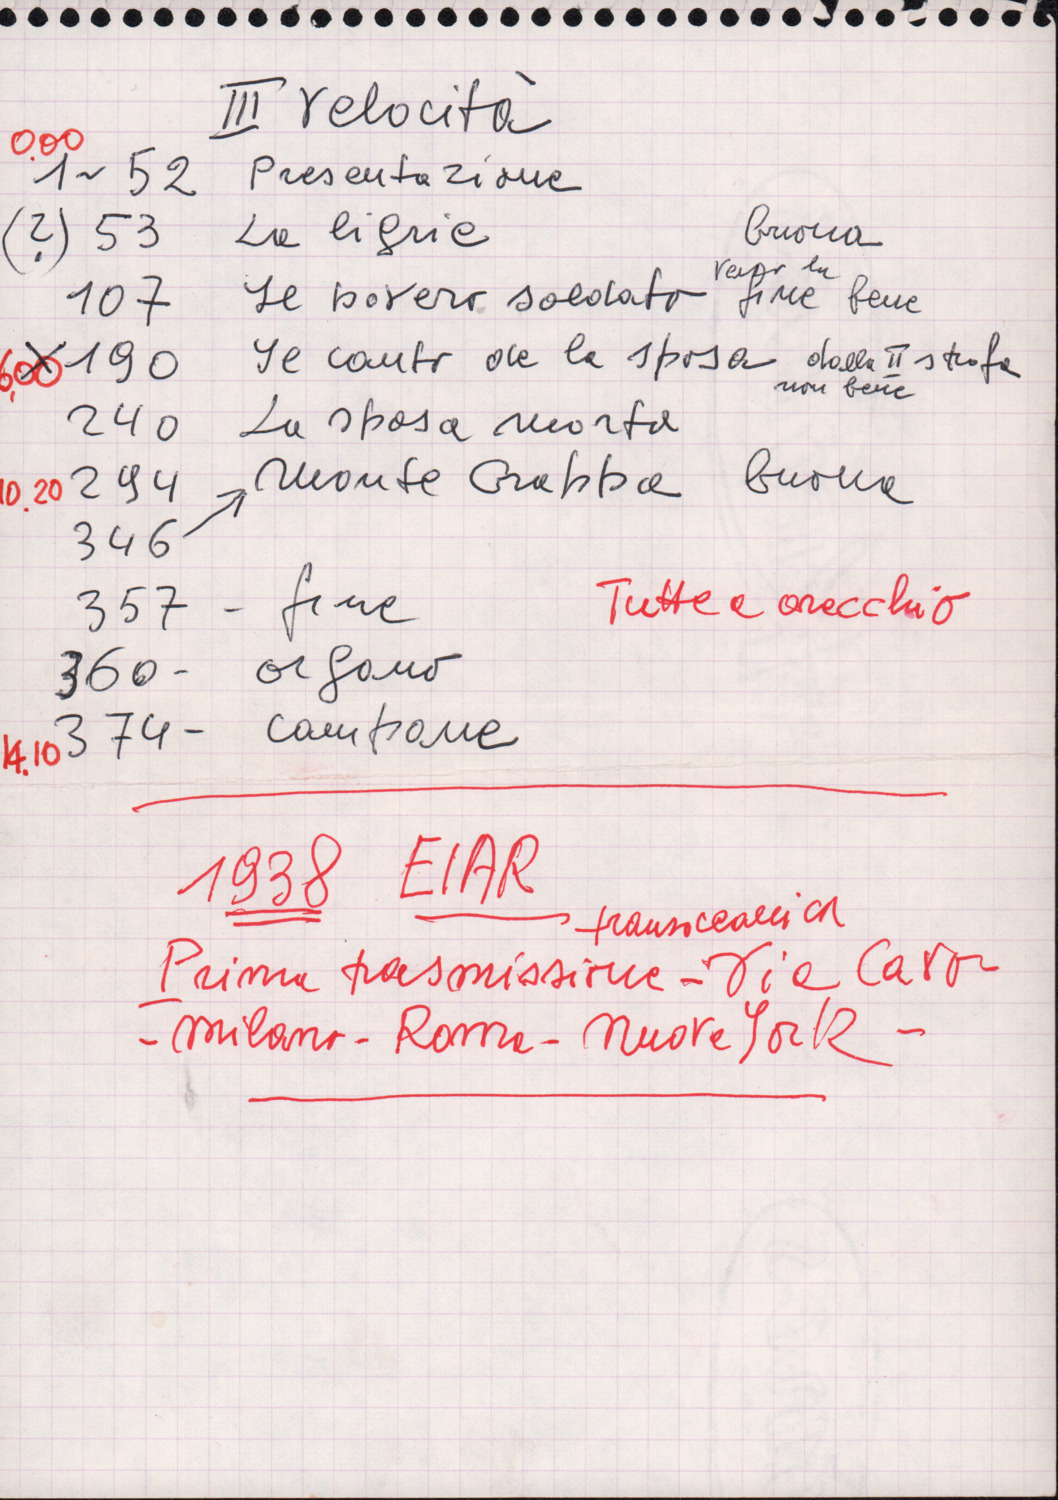 III Velocità
0.00
1~52 Presentazione
(?) 53 La ligrie buona
verso la
107 Il povero soldato fine bene
6,00 X 190 Il canto de la sposa dalla II strofa
non bene
240 La sposa morta
10.20 294 Monte Grappa buona
346
357 - fine Tutte a orecchio
360 - organo
14.10 374 - campane
1938 EIAR
transoceanica
Prima trasmissione - Via Cavo
- Milano - Roma - Nuova York -